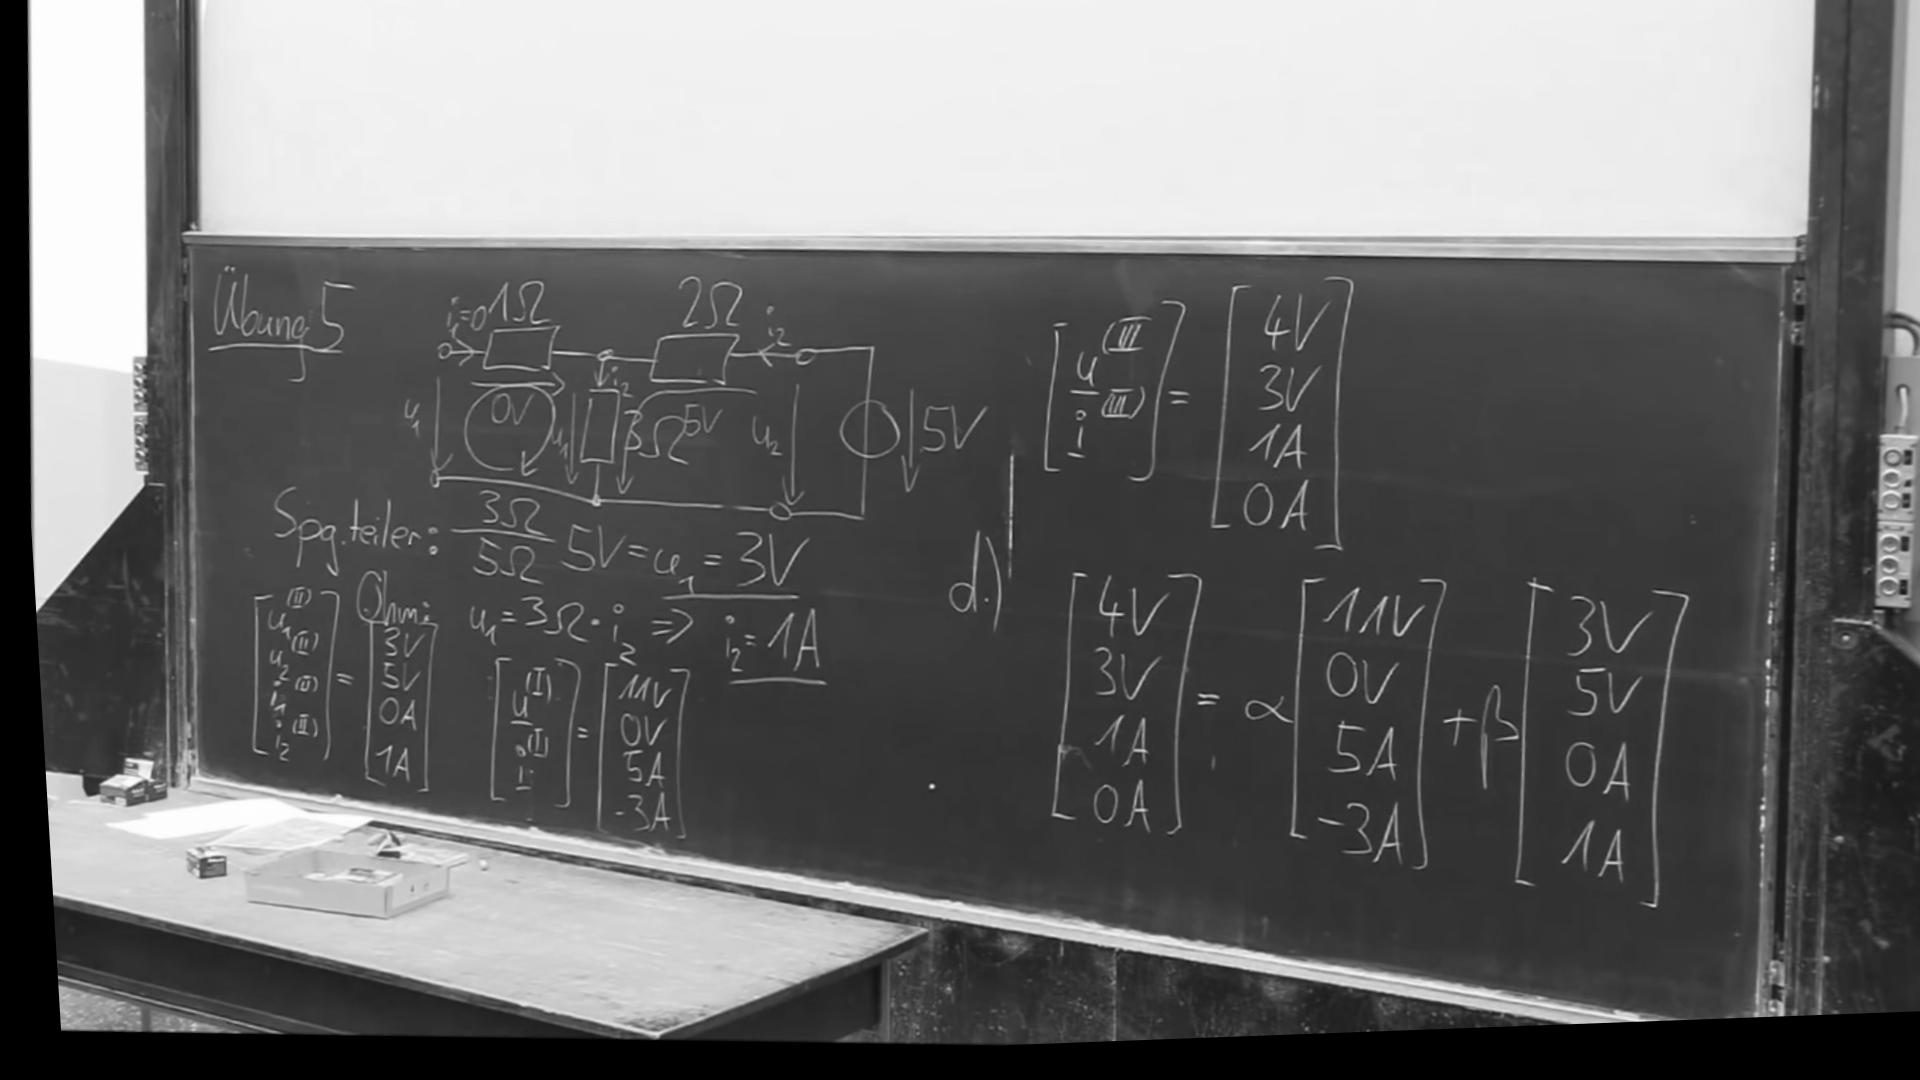 Übung 5
i₁=0 1Ω 2Ω i₂
u₁ 0V u₁ i₂ 3Ω 5V u₂ 5V
Spg.teiler: 3Ω/5Ω 5V = u₁ = 3V
Ohm: u₁ = 3Ω · i₂ ⇒ i₂ = 1A
[u₁^(II) u₂^(II) i₁^(II) i₂^(II)] = [3V 5V 0A 1A]
[u^(I) i^(I)] = [11V 0V 5A -3A]
[u^(III) i^(III)] = [4V 3V 1A 0A]
d.) [4V 3V 1A 0A] = α [11V 0V 5A -3A] + β [3V 5V 0A 1A]